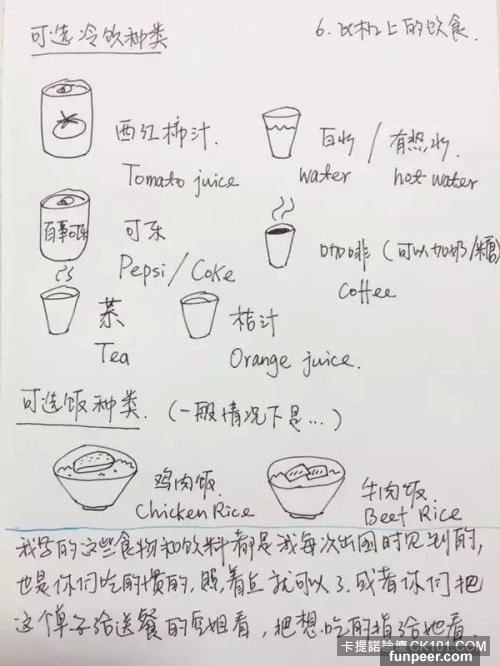 可选冷饮种类
6.飞机上的饮食.
西红柿汁.
Tomato juice
白水 / 有热水.
water
hot water
百事可乐
可乐
Pepsi/Coke
咖啡 (可以加奶/糖)
Coffee
茶
Tea
桔汁
Orange juice.
可选饭种类. (一般情况下是...)
鸡肉饭.
Chicken Rice
牛肉饭.
Beef Rice
我写的这些食物和饮料都是我每次出国时见到的,
也是你们吃的惯的, 照着点就可以了. 或者你们把
这个单子给送餐的空姐看, 把想吃的指给她看
卡提諾論壇 CK101.COM
funpeer.com